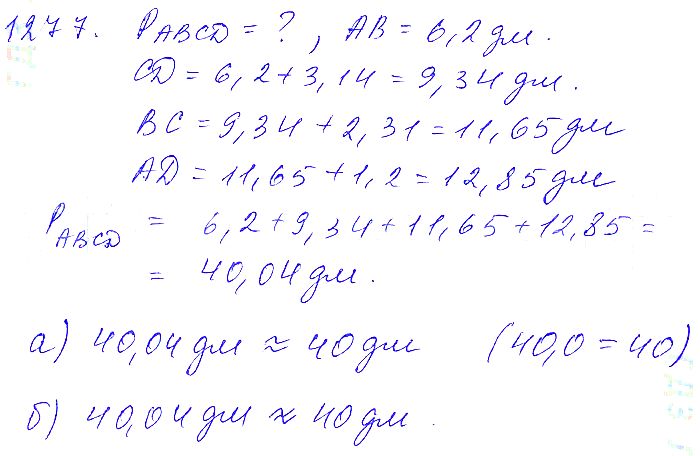 1277. P ABCD = ? , AB = 6,2 дм.
CD = 6,2 + 3,14 = 9,34 дм.
BC = 9,34 + 2,31 = 11,65 дм
AD = 11,65 + 1,2 = 12,85 дм
P ABCD = 6,2 + 9,34 + 11,65 + 12,85 =
= 40,04 дм.
а) 40,04 дм ≈ 40 дм (40,0 = 40)
б) 40,04 дм ≈ 40 дм.